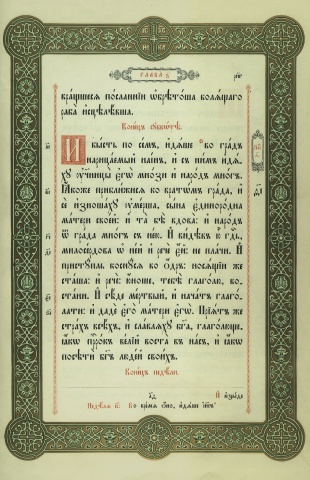 ГЛАВА з҃
вращшеся посланнїи ѡбрѣтоша болящаго
раба исцѣлѣвша.
Конецъ субботѣ.
И бысть по семъ, идяше во градъ
нарицаемый наинъ, и съ нимъ идя-
ху ученицы єгѡ мнози и народъ многъ.
Ꙗкоже приближися ко вратѡмъ града, и
се изношаху умерша, сына єдинородна
матери своей: и та бѣ вдова: и народъ
ѿ града многъ съ нею. И видѣвъ ю гд҃ь,
милосердова ѡ ней и рече єй: не плачи. И
приступль коснуся во ѻдръ: носящїи же
сташа: и рече: юноше, тебѣ глаголю, во-
стани. И сѣде мертвый, и начатъ глаго-
лати: и даде єго матери єгѡ. Прїятъ же
страхъ всѣхъ, и славляху бг҃а, глаголюще,
ꙗкѡ прⷪ҇ркъ велїй воста въ насъ, и ꙗкѡ
посѣти бг҃ъ людей своихъ.
Конецъ недѣли.
И изыде
Недѣля к҃: Во время ѻно, идяше їи҃съ